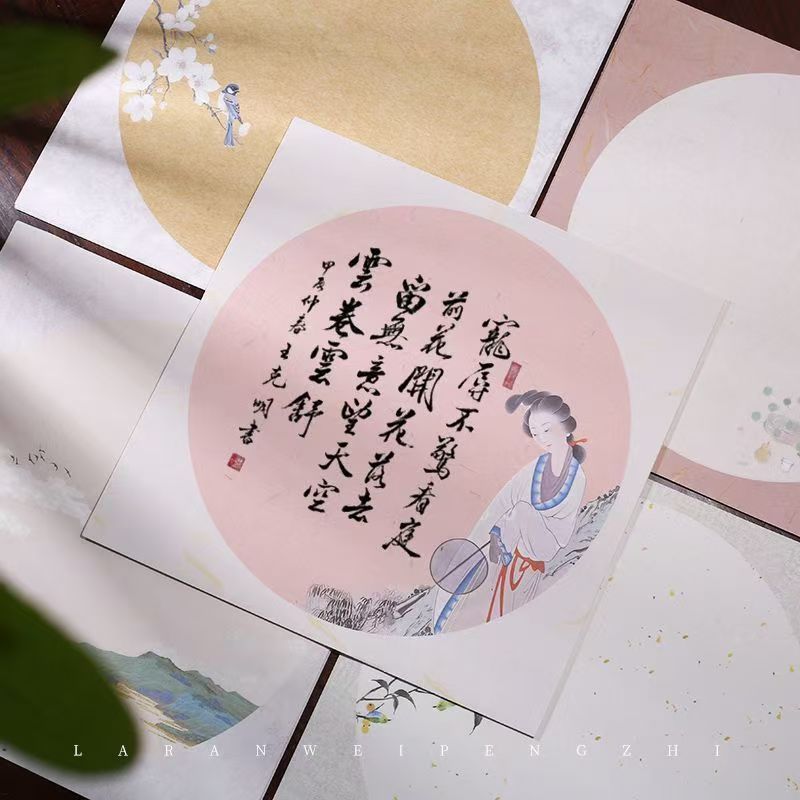 寵辱不驚看庭
前花開花落去
留無意望天空
雲卷雲舒
甲辰仲春王克明書
LARANWEIPENGZHI